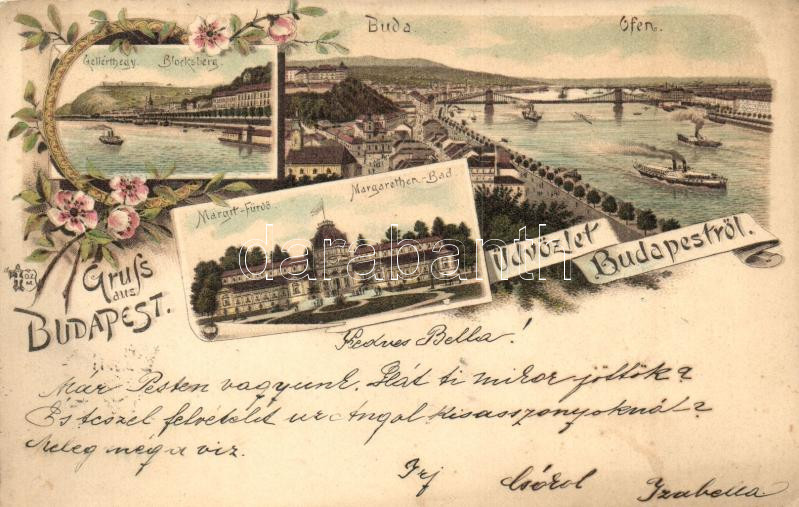 Buda Ofen.
Gellérthegy. Blocksberg.
Margit-Fürdő. Margarethen-Bad
Üdvözlet Budapestről.
Gruss
aus
BUDAPEST.
darabanth.com
Kedves Bella!
Már Pesten vagyunk. Hát ti mikor jöttök?
És teszel felvételit az Angol Kisasszonyoknál?
Meleg még a viz.
Irj Csókol Izabella